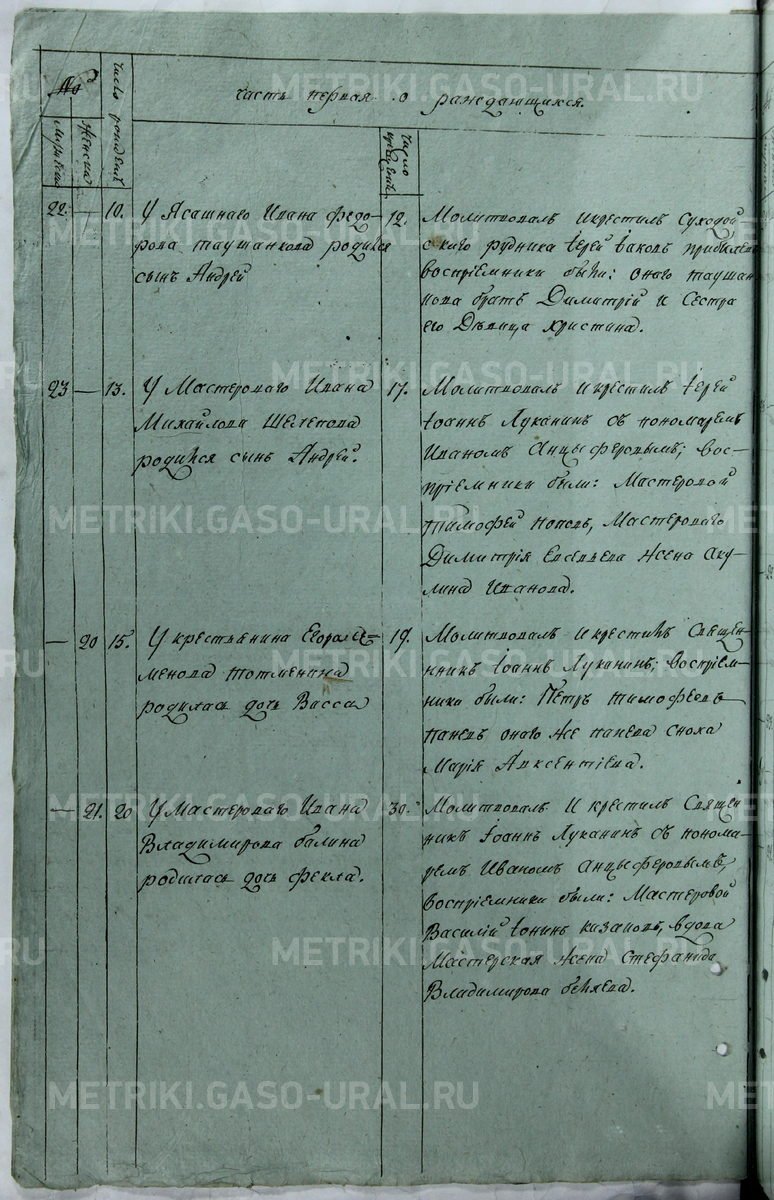 №
число рожденїя
часть первая о рождающихся.
мужеска
женска
число крещенїя
22. — 10.
У Ясашнаго Ивана Федо-
рова Таушанкова родился
сынъ Андрей
12.
Молитвовалъ и крестилъ Суходой-
скаго рудника Їерей Їаковъ
воспрїемники были: онаго Таушан
кова братъ Димитрїй и Сестра
его Дѣвица Христина.
23 — 13.
У Мастероваго Ивана
Михайлова Шелепова
родился сынъ Андрей.
17.
Молитвовалъ и крестилъ Їерей
Їоаннъ Луканинъ съ пономаремъ
Иваномъ Анцыферовымъ; вос-
прїемники были: Мастеровой
Тимофей Поповъ, Мастероваго
Димитрїя Евсевьева Жена Аку-
лина Иванова.
— 20 15.
У крестьянина Егора Се-
менова Тотменина
родилась дочь Васса
19.
Молитвовалъ и крестилъ Священ-
никъ Їоаннъ Луканинъ; воспрїем-
ники были: Петръ Тимофеевъ
Паневъ онаго же Панева сноха
Марїя Авксентїева.
— 21. 20
У Мастероваго Ивана
Владимирова Балина
родилась дочь Фекла.
30.
Молитвовалъ и крестилъ Священ
никъ Їоаннъ Луканинъ съ понома-
ремъ Иваномъ Анцыферовымъ,
воспрїемники были: Мастеровой
Василий Їонинъ Кизаповъ, вдова
Мастерская Жена Стефанида
Владимирова Беляева.
METRIKI.GASO-URAL.RU